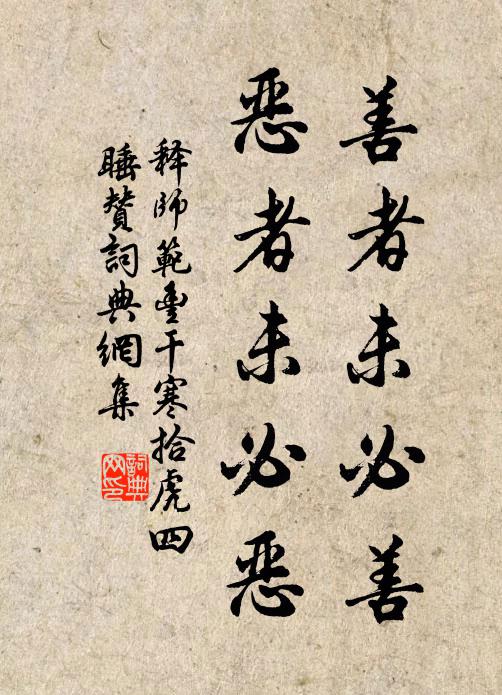 善者未必善
惡者未必惡
释師範豊干寒拾虎四
睡贊詞典網集
詞典网印